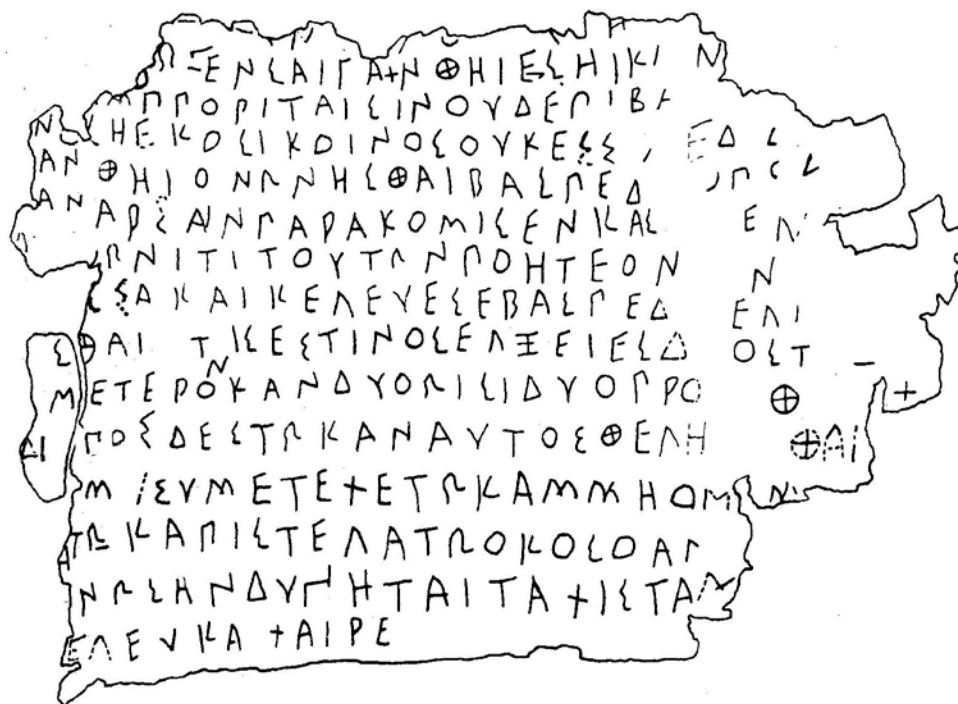 ΩΣΕΝΣΑΙΓΑΧΝΘΗΙΕΣΗΙΚΙ Ν
ΜΠΟΡΙΤΑΙΣΙΝΟΥΔΕΠΙΒΑ
Ν ΣΗΕΚΟΣΙΚΟΙΝΟΣΟΥΚΕΣΣ ΕΔΣ
ΑΝΘΗΙΟΝΩΝΗΣΘΑΙΒΑΣΠΕΔ ΩΠΣΛ
ΑΝΑΡΣΑΝΠΑΡΑΚΟΜΙΣΕΝΚΑΣ ΕΝ
ΩΝΙΤΙΤΟΥΤΩΝΠΟΗΤΕΟΝ Ν
ΣΣΑΚΑΙΚΕΛΕΥΕΣΕΒΑΣΠΕΔ ΕΛΙ
ΣΘΑΙ ΤΙΣΕΣΤΙΝΟΣΕΛΞΕΙΕΣΔ ΟΣΤ
ΜΕΤΕΡΟΝΚΑΝΔΥΟΩΙΣΙΔΥΟΠΡΟ Θ Χ
ΔΙ ΠΟΣΔΕΣΤΩΚΑΝΑΥΤΟΣΘΕΛΗ ΘΑΙ
Μ ΙΣΥΜΕΤΕΧΕΤΩΚΑΜΜΗΟΜ Ν
ΑΤΩΚΑΠΙΣΤΕΛΑΤΩΟΚΟΣΟΑΠ
ΝΩΣΗΝΔΥΝΗΤΑΙΤΑΧΙΣΤΑΜ
ΕΛΕΥΚΑ ΧΑΙΡΕ